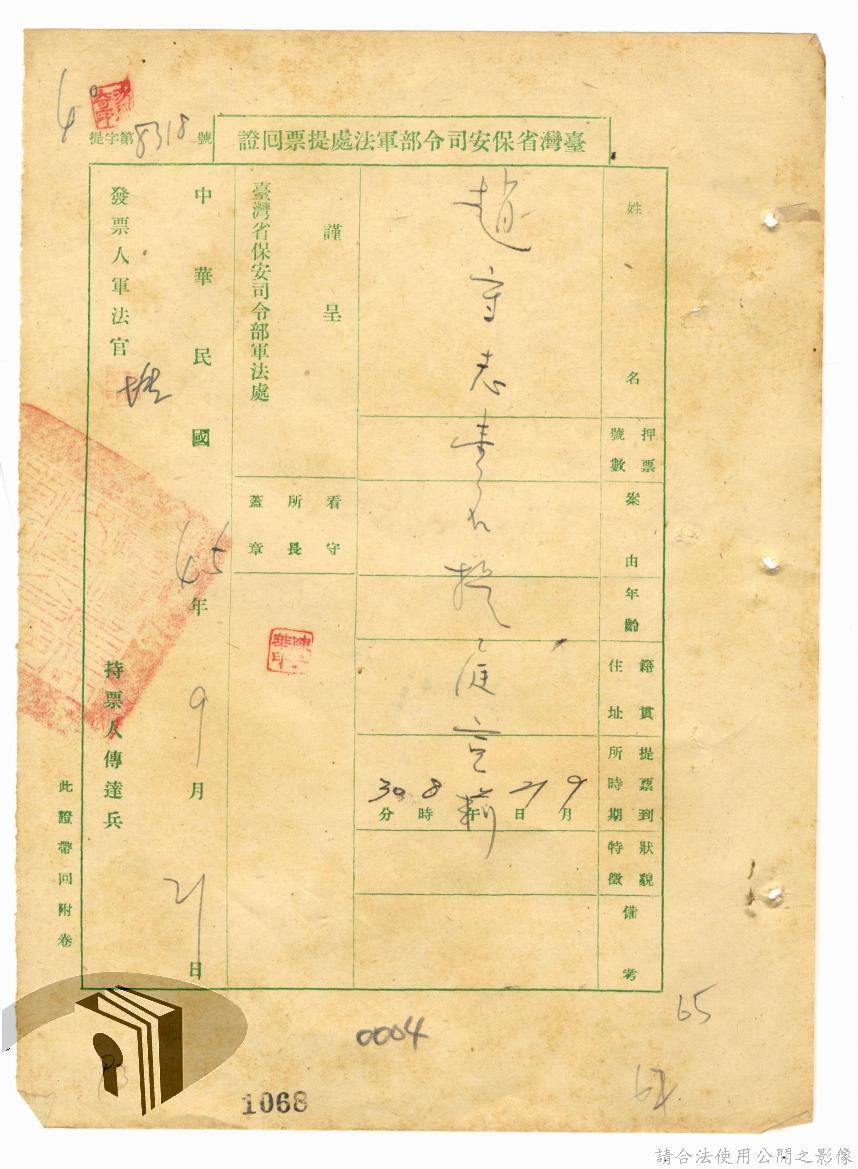 臺灣省保安司令部軍法處提票回證
提字第8318號
姓名
趙守志
押票號數
案由
年齡
籍貫住址
提票到所時期
9月21日午8時30分
狀貌特徵
備考
提庭宣
謹呈
臺灣省保安司令部軍法處
看守所長蓋章
中華民國45年9月21日
發票人軍法官
持票人傳達兵
此證帶回附卷
65
0004
1068
請合法使用公開之影像